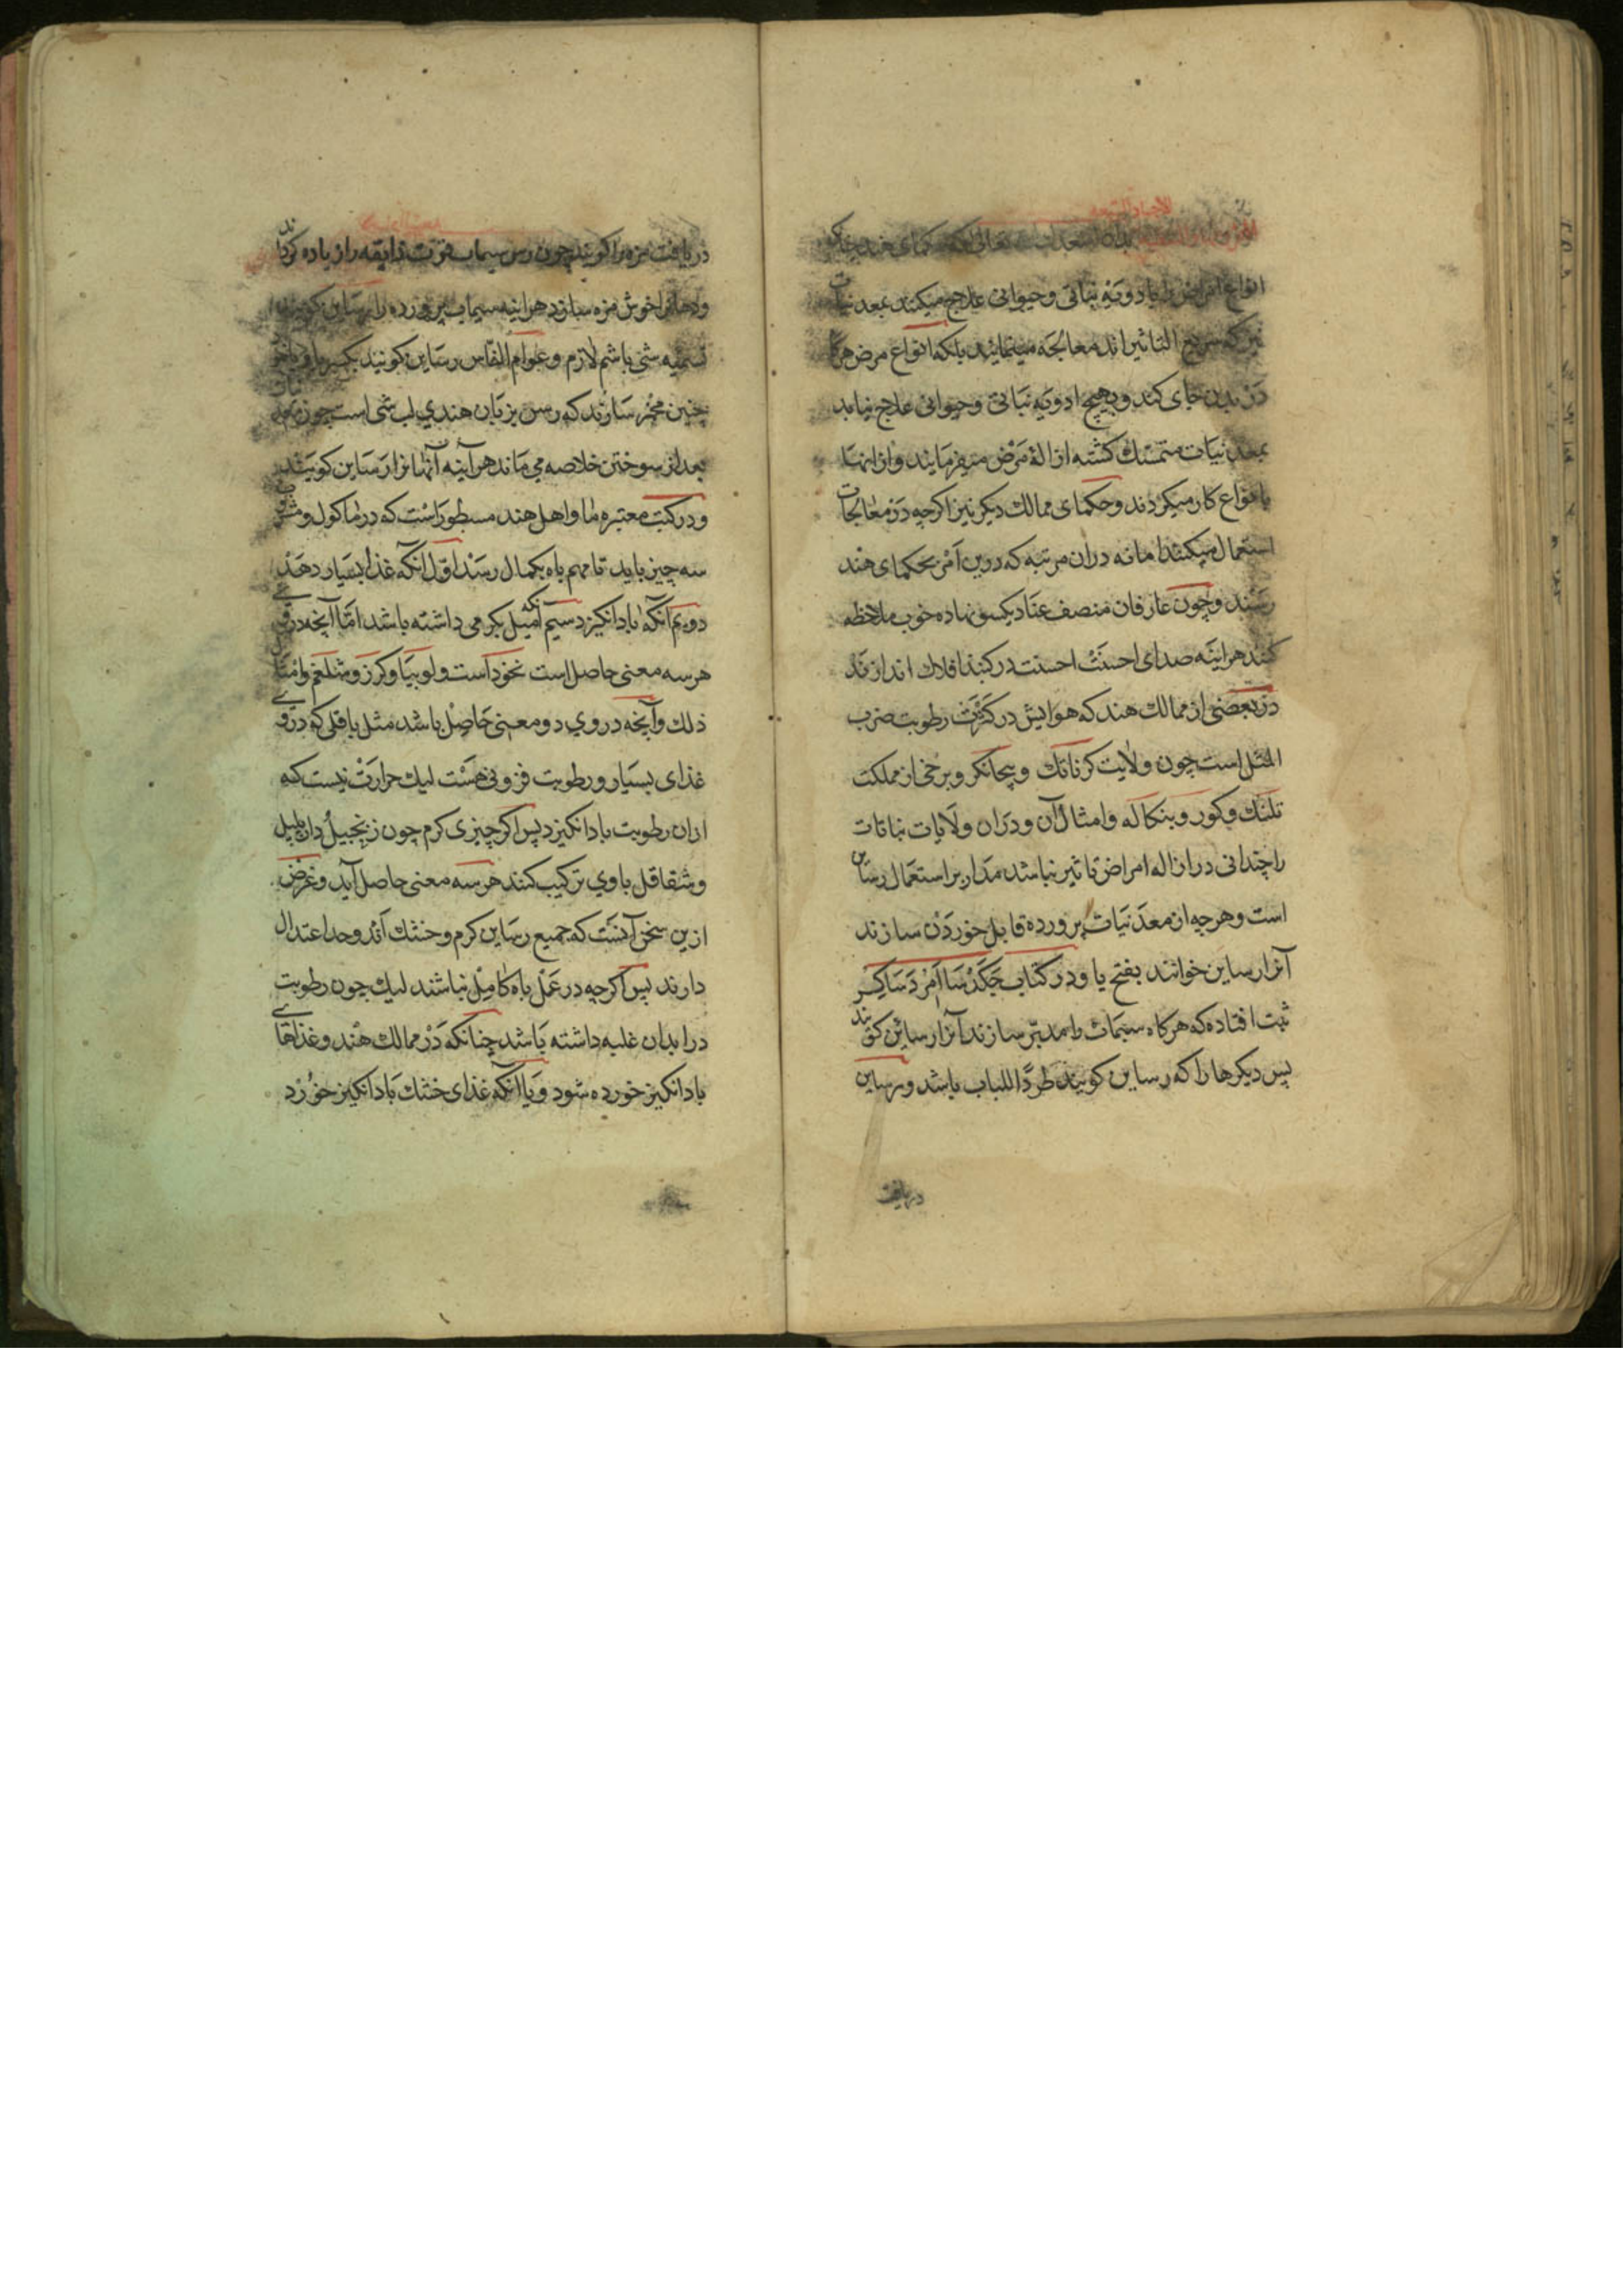 بدان اسعدک الله تعالی که حکمای هند چنانکه
انواع امراض را بادویهٔ نباتی و حیوانی علاج میکنند بمعدنیات
نیز که سریع التاثیراند معالجه مینمایند بلکه انواع مرض هرگاه
در بدن جای کند و بهیچ ادویهٔ نباتی و حیوانی علاج نیابد
بمعدنیات متمسّک گشته ازالهٔ مرض میفرمایند و از اینها
بانواع کار میکردند و حکمای ممالک دیگر نیز اگرچه در معالجات
استعمال میکنند اما نه دران مرتبه که درین امر بحکمای هند
رسند و چون عارفان منصف عناد یکسو نهاده خوب ملاحظه
کنند هراینه صدای احسنت احسنت در گنبد افلاک اندازند
در بعضی از ممالک هند که هوایش در کثرت رطوبت ضرب
المثل است چون ولایت کرناتک و بیجانکر و برخی از مملکت
تلنک و کور و بنکاله و امثال آن و دران ولایات نباتات
را چندانی در ازاله امراض تاثیر نباشد مدار بر استعمال رساین
است و هرچه از معدنیات پرورده قابل خوردن سازند
آنرا رساین خوانند بفتح یا و در کتاب جکدسا امرد ساکر
ثبت افتاده که هرگاه سیماب را مدبّر سازند آنرا رساین گویند
پس دیگرها را که رساین گویند طردًا للباب باشد و رساین
دریافت
دریافت مزه را گویند چون رس سیماب قوت ذایقه را زیاده گرداند
و دهانرا خوش مزه سازد هراینه سیماب پرورده را رساین گویند
تسمیه شی باسم لازم و عوام الناس رساین گویند بکسر یا و یا خود
چنین مخمر سازند که رس بزبان هندی لب شی است چون
بعد از سوختن خلاصه می ماند هرآینه آنها را رساین گویند
و در کتب معتبره ما و اهل هند مسطور است که در ماکول و مشروب
سه چیز باید تا مهم باه بکمال رسد اول آنکه غذا بسیار دهد
دویم آنکه باد انگیزد سیم آنکه میل بکرمی داشته باشد اما آنچه دروی
هرسه معنی حاصل است نخود است و لوبیا و کرز و شلغم و امثال
ذلک و آنچه در وی دو معنی حاصل باشد مثل باقلی که دروی
غذای بسیار و رطوبت فزونی هست لیک حرارت نیست که
ازان رطوبت باد انگیزد پس اگر چیزی کرم چون زنجبیل و دارپلپل
و شقاقل با وی ترکیب کنند هرسه معنی حاصل آید و غرض
ازین سخن آنست که جمیع رساین کرم و خشک آند و حد اعتدال
دارند پس اگرچه در عمل باه کامل نباشند لیک چون رطوبت
در ابدان غلبه داشته باشد چنانکه در ممالک هند و غذاهای
باد انگیز خورده شود و یا آنکه غذای خشک باد انگیز خورد